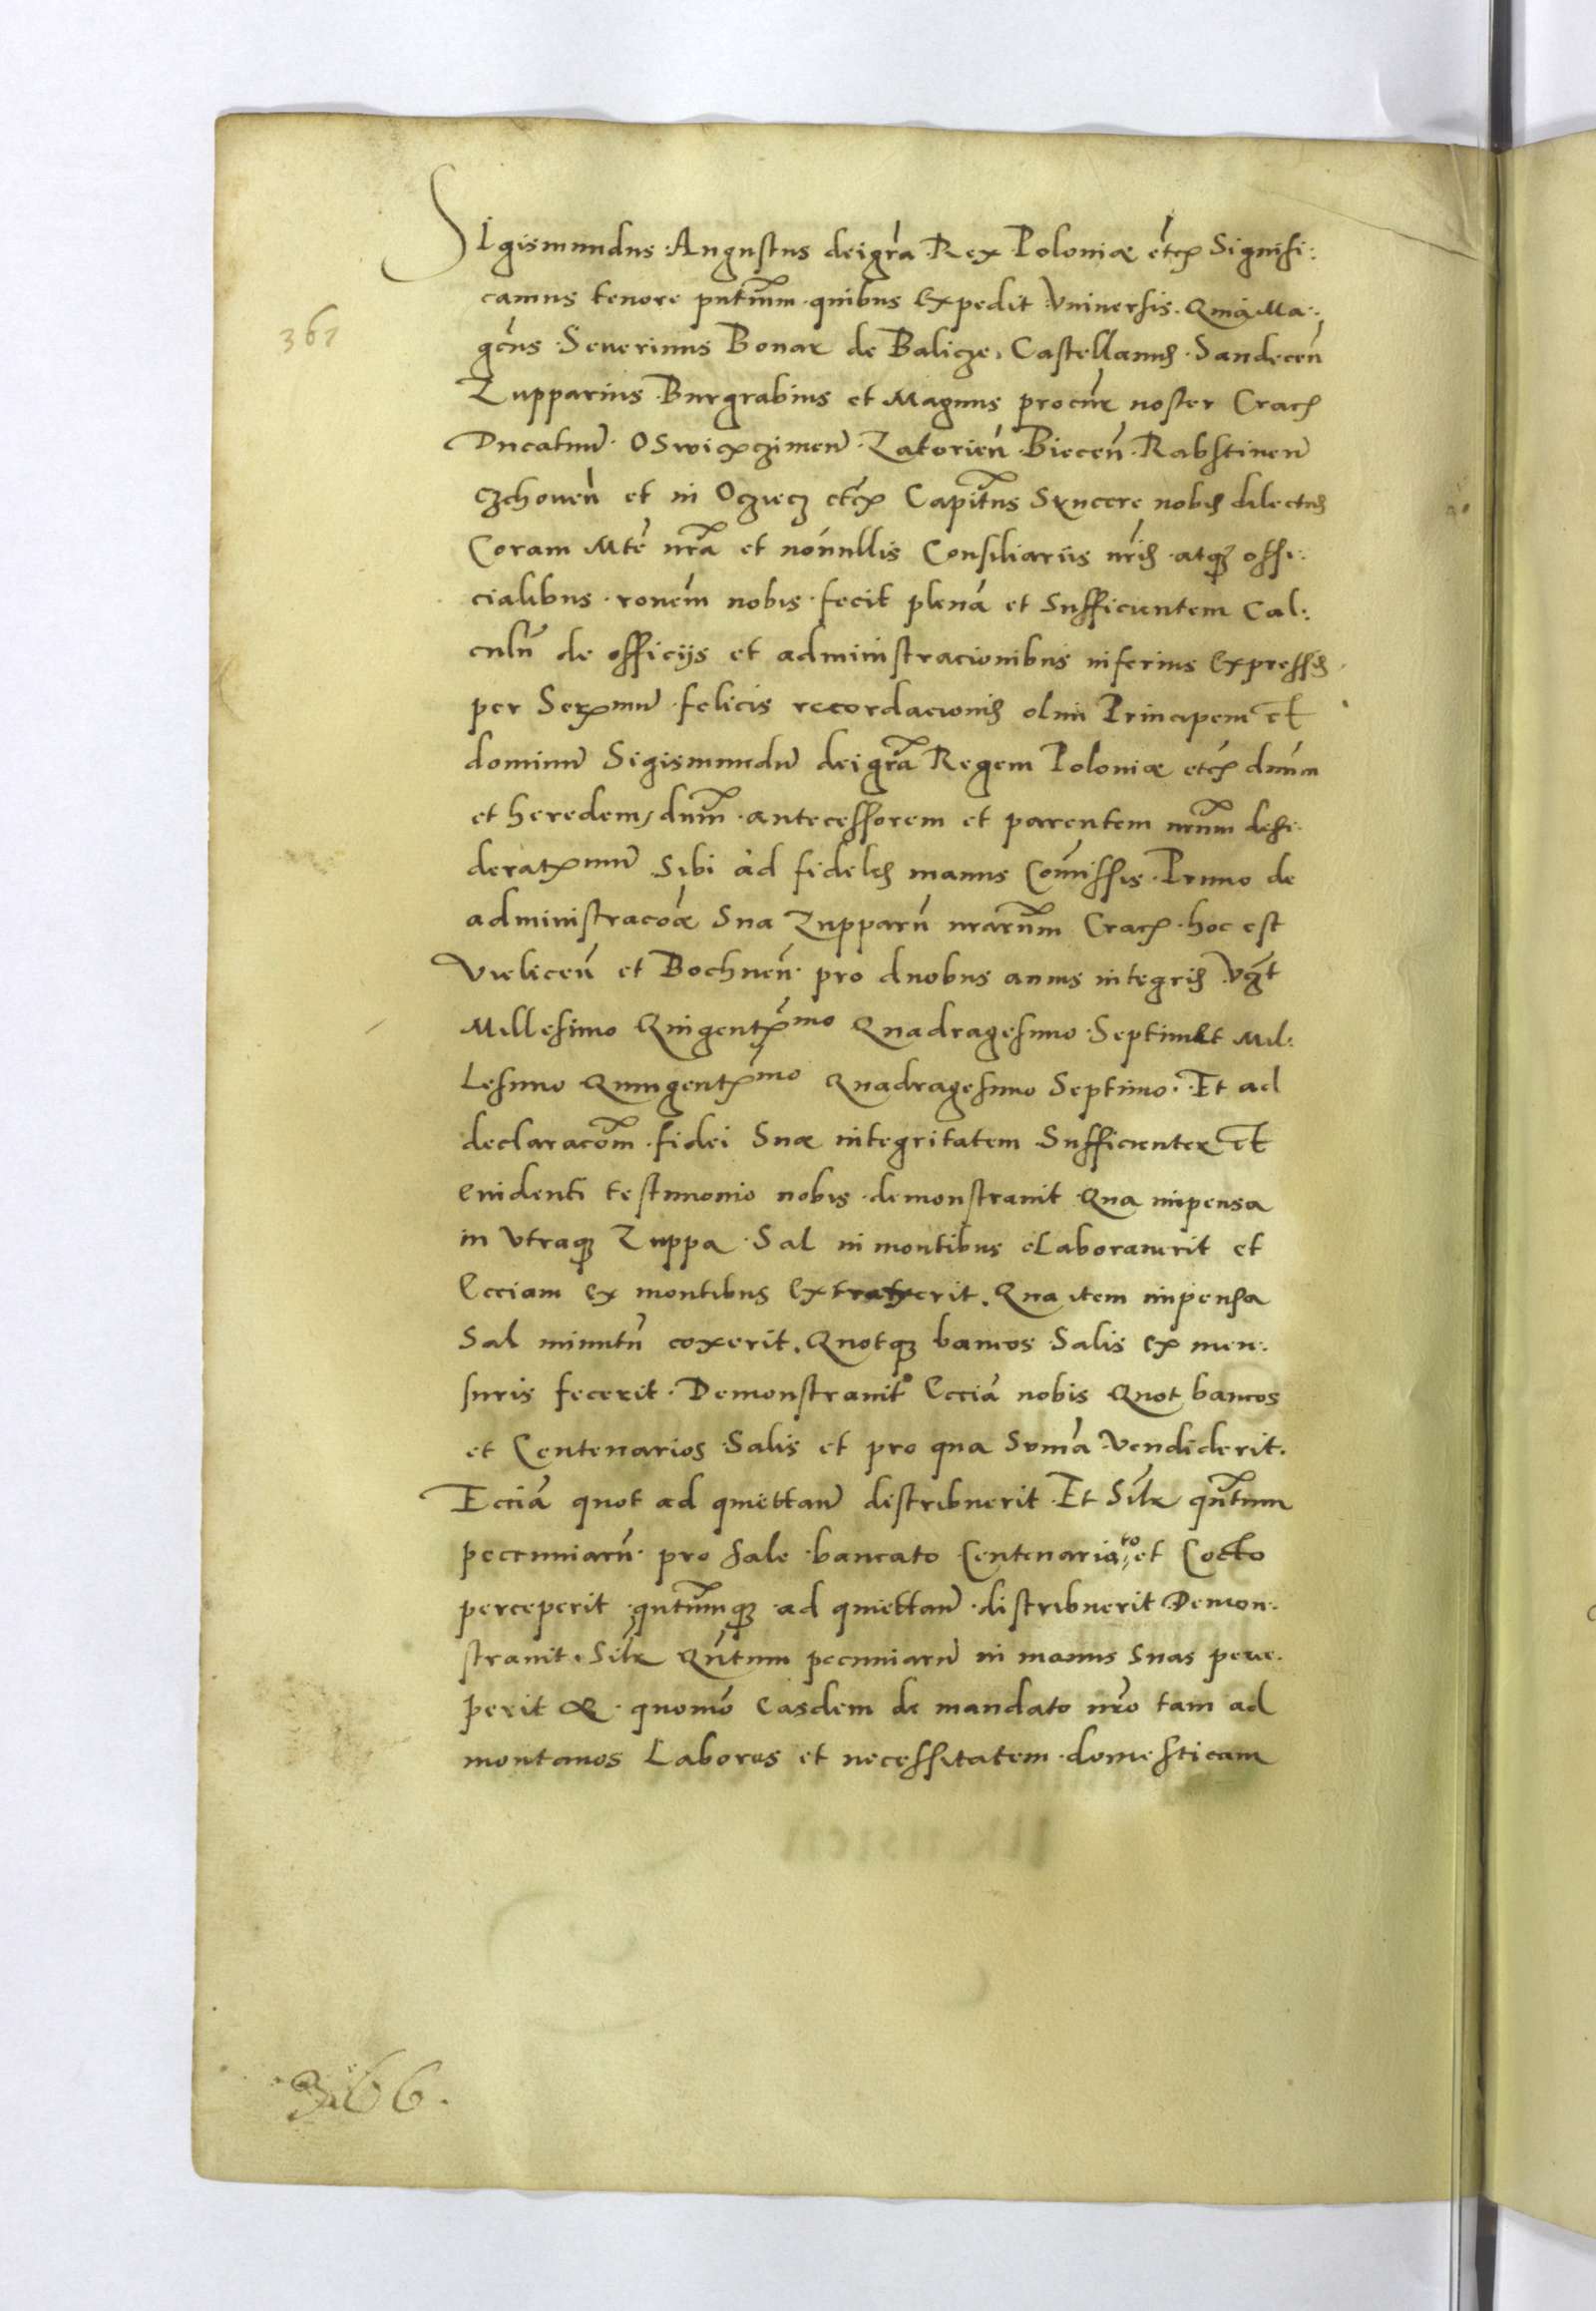 SIgismundus Augustus dei gr̃a Rex Poloniæ etc̃ Signifi:
camus tenore pñtium quibus expedit Vniuersis. Quia Ma:
gc̃us Seuerinus Bonar de Balicze, Castellanus Sandeceñ
361
Zupparius Burgrabius et Magnus procur̃ noster Crac̃
Ducatuũ Oswięczimeñ Zatorieñ Bieceñ Rabstineñ
Czchoueñ et in Ocziecz etc̃ Capit̃us Syncere nobis dilectus
Coram Mt̃e nr̃a et nõnullis Consiliariis nr̃is atq; offi:
cialibus rõnem nobis fecit plenã et Sufficientem Cal:
culũ de officijs et administracionibus inferius expressis
per Serₓmũ felicis recordacionis olim Principem et
dominũ Sigismundũ dei gr̃a Regem Poloniæ etc̃ dñum
et heredem, dñum antecessorem et parentem nr̃um desi:
deratₓmũ Sibi ad fideles manus Cõmissis. Primo de
administracõe Sua Zupparũ nr̃arum Crac̃ hoc est
Vieliceñ et Bochneñ pro duobus annis integris Vg̃t
Millesimo Quigentₓmo Quadragesimo Septimet Mil:
lesimo Quingentₓmo Quadragesimo Septimo. Et ad
declaracõm fidei Suæ integritatem Sufficienter et
euidenti testimonio nobis demonstrauit Qua impensa
in Vtraq; Zuppa Sal in montibus elaborauerit et
Ecciam ex montibus extraxerit. Qua item impensa
Sal minutũ coxerit. Quotq; bancos Salis ex men:
suris fecerit. Demonstrauit Ecciã nobis Quot bancos
et Centenarios Salis et pro qua Sum̃a Vendiderit.
Ecciã quot ad quiettañ distribuerit Et Sil̃r quñtum
pecuniarũ pro Sale bancato Centenariato et Cocto
perceperit quñtumq; ad quiettañ distribuerit Demon:
strauit. Sil̃r Quñtum pecuniarũ in manus Suas perce:
perit & quomõ Easdem de mandato nr̃o tam ad
montanos Labores et necessitatem domesticam
366.